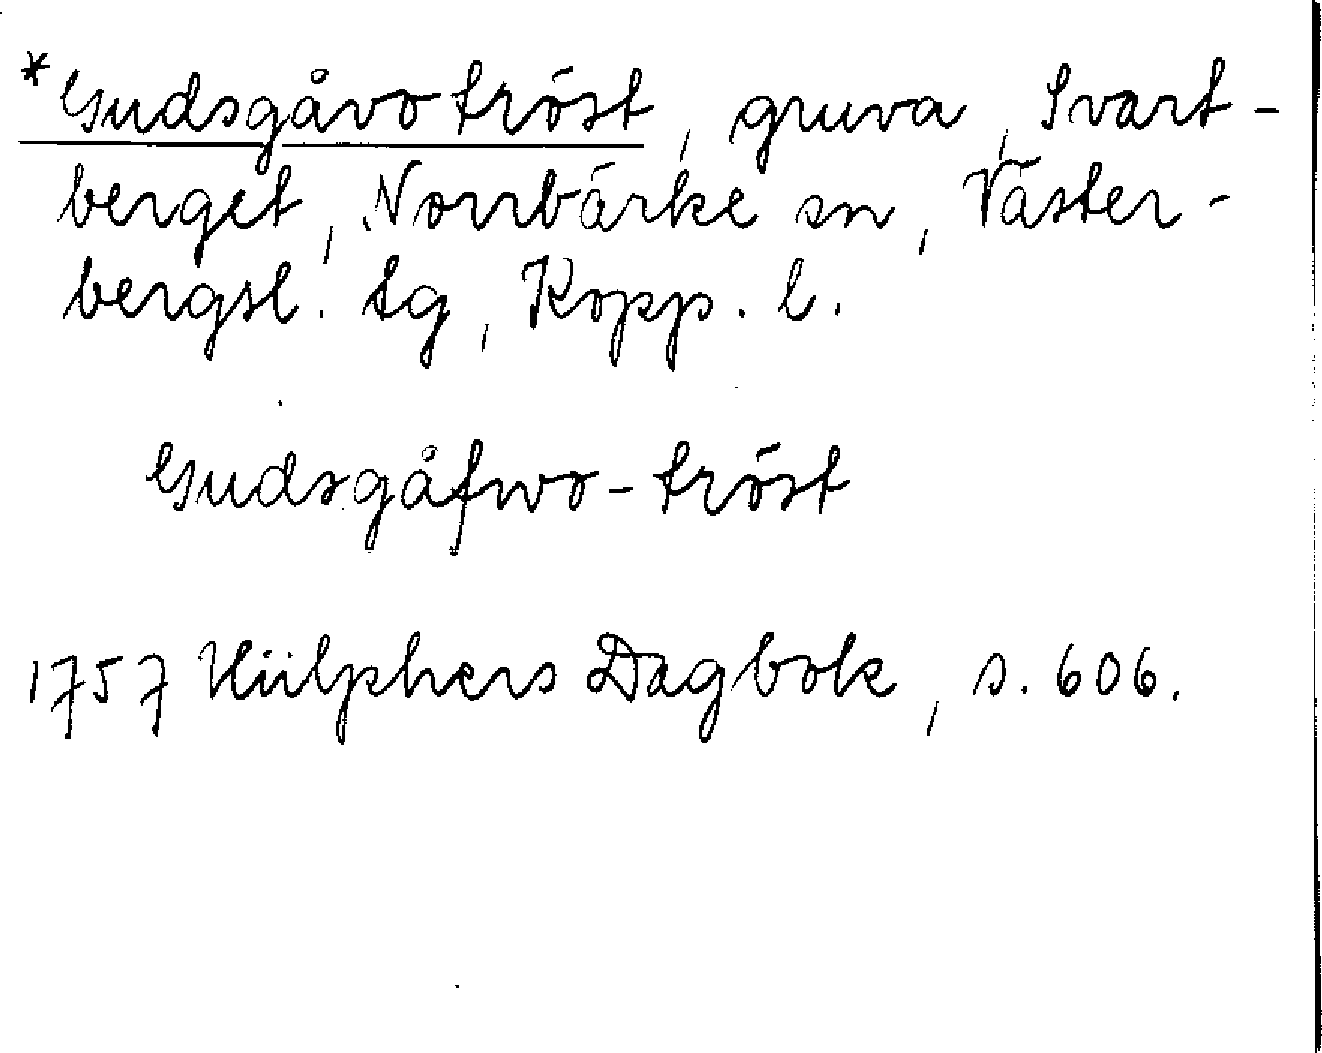 *Gudsgåvotröst, gruva, Svart-
berget, Norrbärke sn, Väster-
bergsl. tg, Kopp. l.
Gudsgåfwo-tröst
1757 Hülphers Dagbok, s. 606.